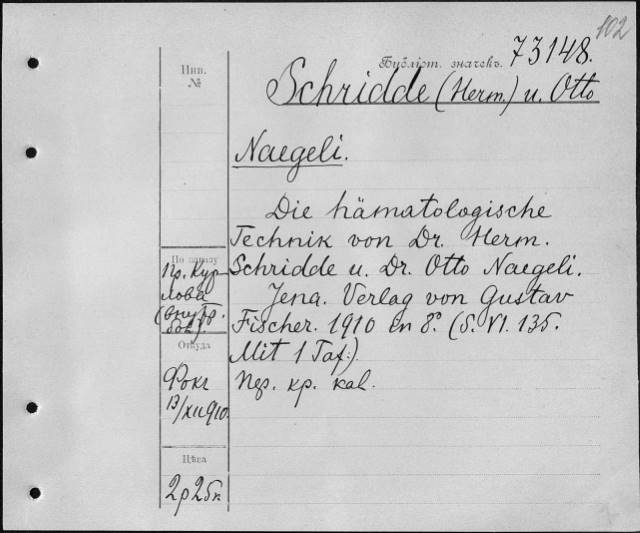 102
Библіот. значекъ. 73148.
Инв. №
Schridde (Herm.) u. Otto
Naegeli.
Die hämatologische
Technik von Dr. Herm.
Schridde u. Dr. Otto Naegeli.
Jena. Verlag von Gustav
Fischer. 1910 in 8º. (S. VI. 135.
Mit 1 Taf.)
кр. каl.
По заказу
Пр. Кур-
лова
(внутр.
бол).
Откуда
Фокг
13/XII 910.
Цѣна
2р 25к